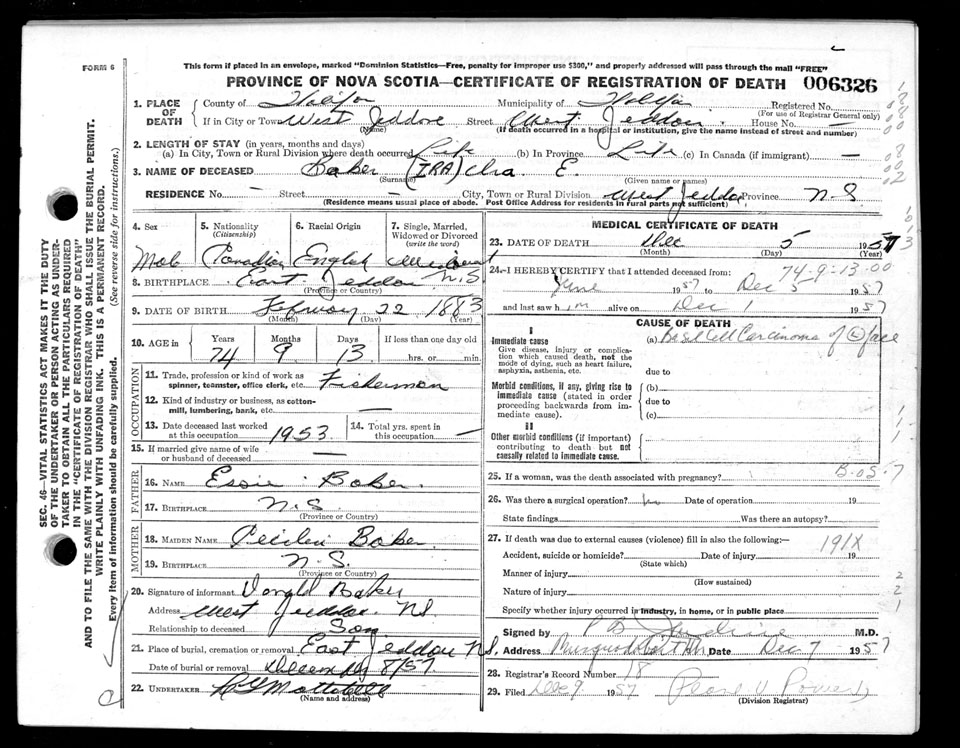 FORM 6
This form if placed in an envelope, marked "Dominion Statistics—Free, penalty for improper use $300," and properly addressed will pass through the mail "FREE"
PROVINCE OF NOVA SCOTIA—CERTIFICATE OF REGISTRATION OF DEATH 006326
1. PLACE OF DEATH
County of Halifax Municipality of Halifax Registered No.
(For use of Registrar General only)
If in City or Town West Jeddore Street West Jeddore House No. —
(Name) (If death occurred in a hospital or institution, give the name instead of street and number)
2. LENGTH OF STAY (in years, months and days)
(a) In City, Town or Rural Division where death occurred Life (b) In Province Life (c) In Canada (if immigrant) —
3. NAME OF DECEASED Baker (IRA) Ira E.
(Surname) (Given name or names)
RESIDENCE No. — Street — City, Town or Rural Division West Jeddore Province N.S.
(Residence means usual place of abode. Post Office Address for residents in rural parts not sufficient).
4. Sex
5. Nationality (Citizenship)
6. Racial Origin
7. Single, Married, Widowed or Divorced (write the word)
Male Canadian English
8. BIRTHPLACE East Jeddore N.S
(Province or Country)
9. DATE OF BIRTH 22 1883
(Month) (Day) (Year)
10. AGE in Years Months Days If less than one day old
74 9 13 hrs. or min.
OCCUPATION
11. Trade, profession or kind of work as spinner, teamster, office clerk, etc. Fisherman
12. Kind of industry or business, as cotton-mill, lumbering, bank, etc. —
13. Date deceased last worked at this occupation 1953
14. Total yrs. spent in this occupation —
15. If married give name of wife or husband of deceased —
FATHER
16. NAME Baker
17. BIRTHPLACE N.S.
(Province or Country)
MOTHER
18. MAIDEN NAME Baker
19. BIRTHPLACE N.S.
(Province or Country)
20. Signature of informant Donald Baker
Address West Jeddore N.S
Relationship to deceased Son
21. Place of burial, cremation or removal East Jeddore N.S.
Date of burial or removal December 8/57
22. UNDERTAKER
(Name and address)
MEDICAL CERTIFICATE OF DEATH
23. DATE OF DEATH Dec 5 1957
(Month) (Day) (Year)
74-9-13-00
24. I HEREBY CERTIFY that I attended deceased from:
June 1957 to Dec 5 1957
and last saw him alive on Dec 1 1957
CAUSE OF DEATH
I
Immediate cause
Give disease, injury or complication which caused death, not the mode of dying, such as heart failure, asphyxia, asthenia, etc.
(a) Basal Cell Carcinoma of face
due to
Morbid conditions, if any, giving rise to immediate cause (stated in order proceeding backwards from immediate cause).
(b)
due to
(c)
II
Other morbid conditions (if important) contributing to death but not causally related to immediate cause.
25. If a woman, was the death associated with pregnancy?
26. Was there a surgical operation? no Date of operation 19
State findings Was there an autopsy?
27. If death was due to external causes (violence) fill in also the following:—
191X
Accident, suicide or homicide? Date of injury 19
(State which)
Manner of injury
(How sustained)
Nature of injury
Specify whether injury occurred in industry, in home, or in public place
Signed by M.D.
Address Date Dec 7 1957
28. Registrar's Record Number 18
29. Filed Dec 9 1957
(Division Registrar)
SEC. 46—VITAL STATISTICS ACT MAKES IT THE DUTY
OF THE UNDERTAKER OR PERSON ACTING AS UNDER-
TAKER TO OBTAIN ALL THE PARTICULARS REQUIRED
IN THE "CERTIFICATE OF REGISTRATION OF DEATH"
AND TO FILE THE SAME WITH THE DIVISION REGISTRAR WHO SHALL ISSUE THE BURIAL PERMIT.
WRITE PLAINLY WITH UNFADING INK. THIS IS A PERMANENT RECORD.
Every item of information should be carefully supplied. (See reverse side for instructions.)